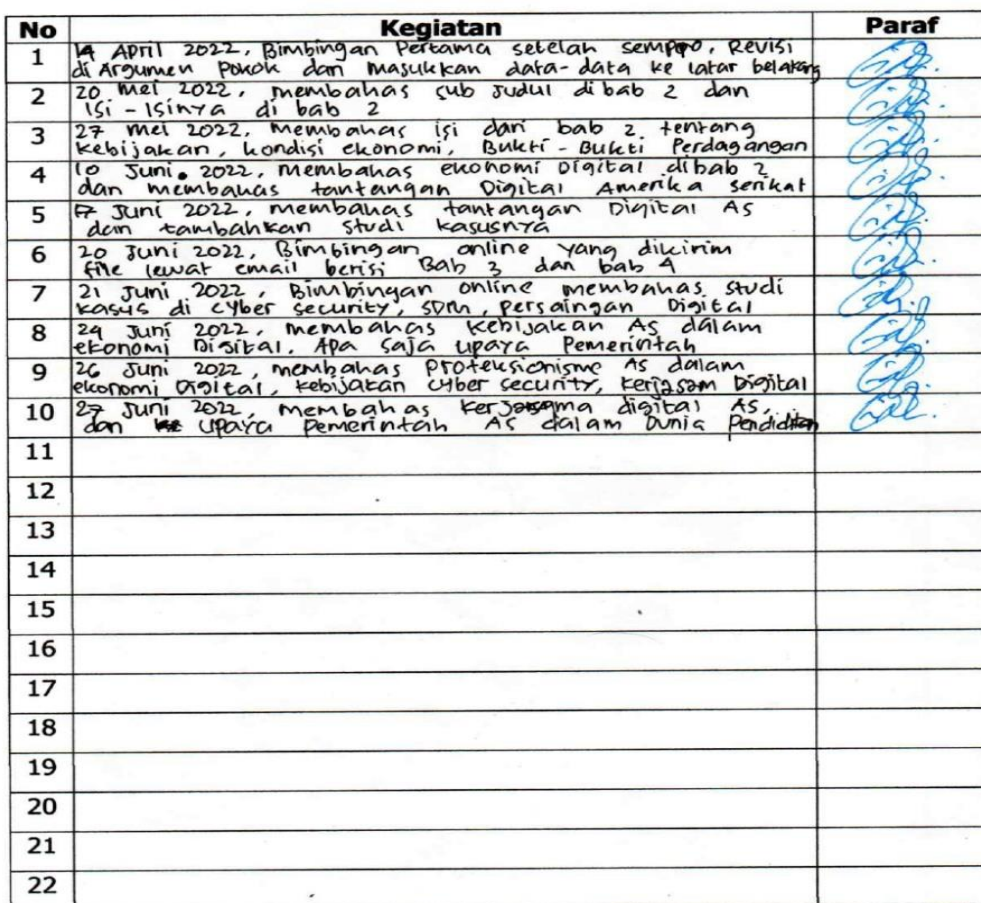 No Kegiatan Paraf
1 14 April 2022, Bimbingan Pertama setelah sempro, Revisi
di Argumen Pokok dan masukkan data-data ke latar belakang
2 20 Mei 2022, membahas sub judul di bab 2 dan
isi - isinya di bab 2
3 27 Mei 2022, membahas isi dari bab 2 tentang
kebijakan, kondisi ekonomi, Bukti - Bukti Perdagangan
4 10 Juni. 2022, membahas ekonomi Digital dibab 2
dan membahas tantangan Digital Amerika serikat
5 17 Juni 2022, membahas tantangan Digital AS
dan tambahkan studi kasusnya
6 20 Juni 2022, Bimbingan online yang dikirim
file lewat email berisi Bab 3 dan bab 4
7 21 Juni 2022, Bimbingan online membahas studi
kasus di cyber security, SDM, persaingan Digital
8 24 Juni 2022, membahas kebijakan AS dalam
ekonomi Digital. Apa saja upaya Pemerintah
9 26 Juni 2022, membahas proteksionisme AS dalam
ekonomi Digital, kebijakan cyber security, kerjasam Digital
10 27 Juni 2022, membahas kerjasama digital AS,
dan upaya pemerintah AS dalam Dunia Pendidikan
11
12
13
14
15
16
17
18
19
20
21
22